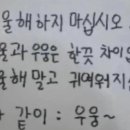 울해하지 마십시오
울과 우웅은 한끗 차이입
울해 말고 귀여워지십
같이 : 우웅~